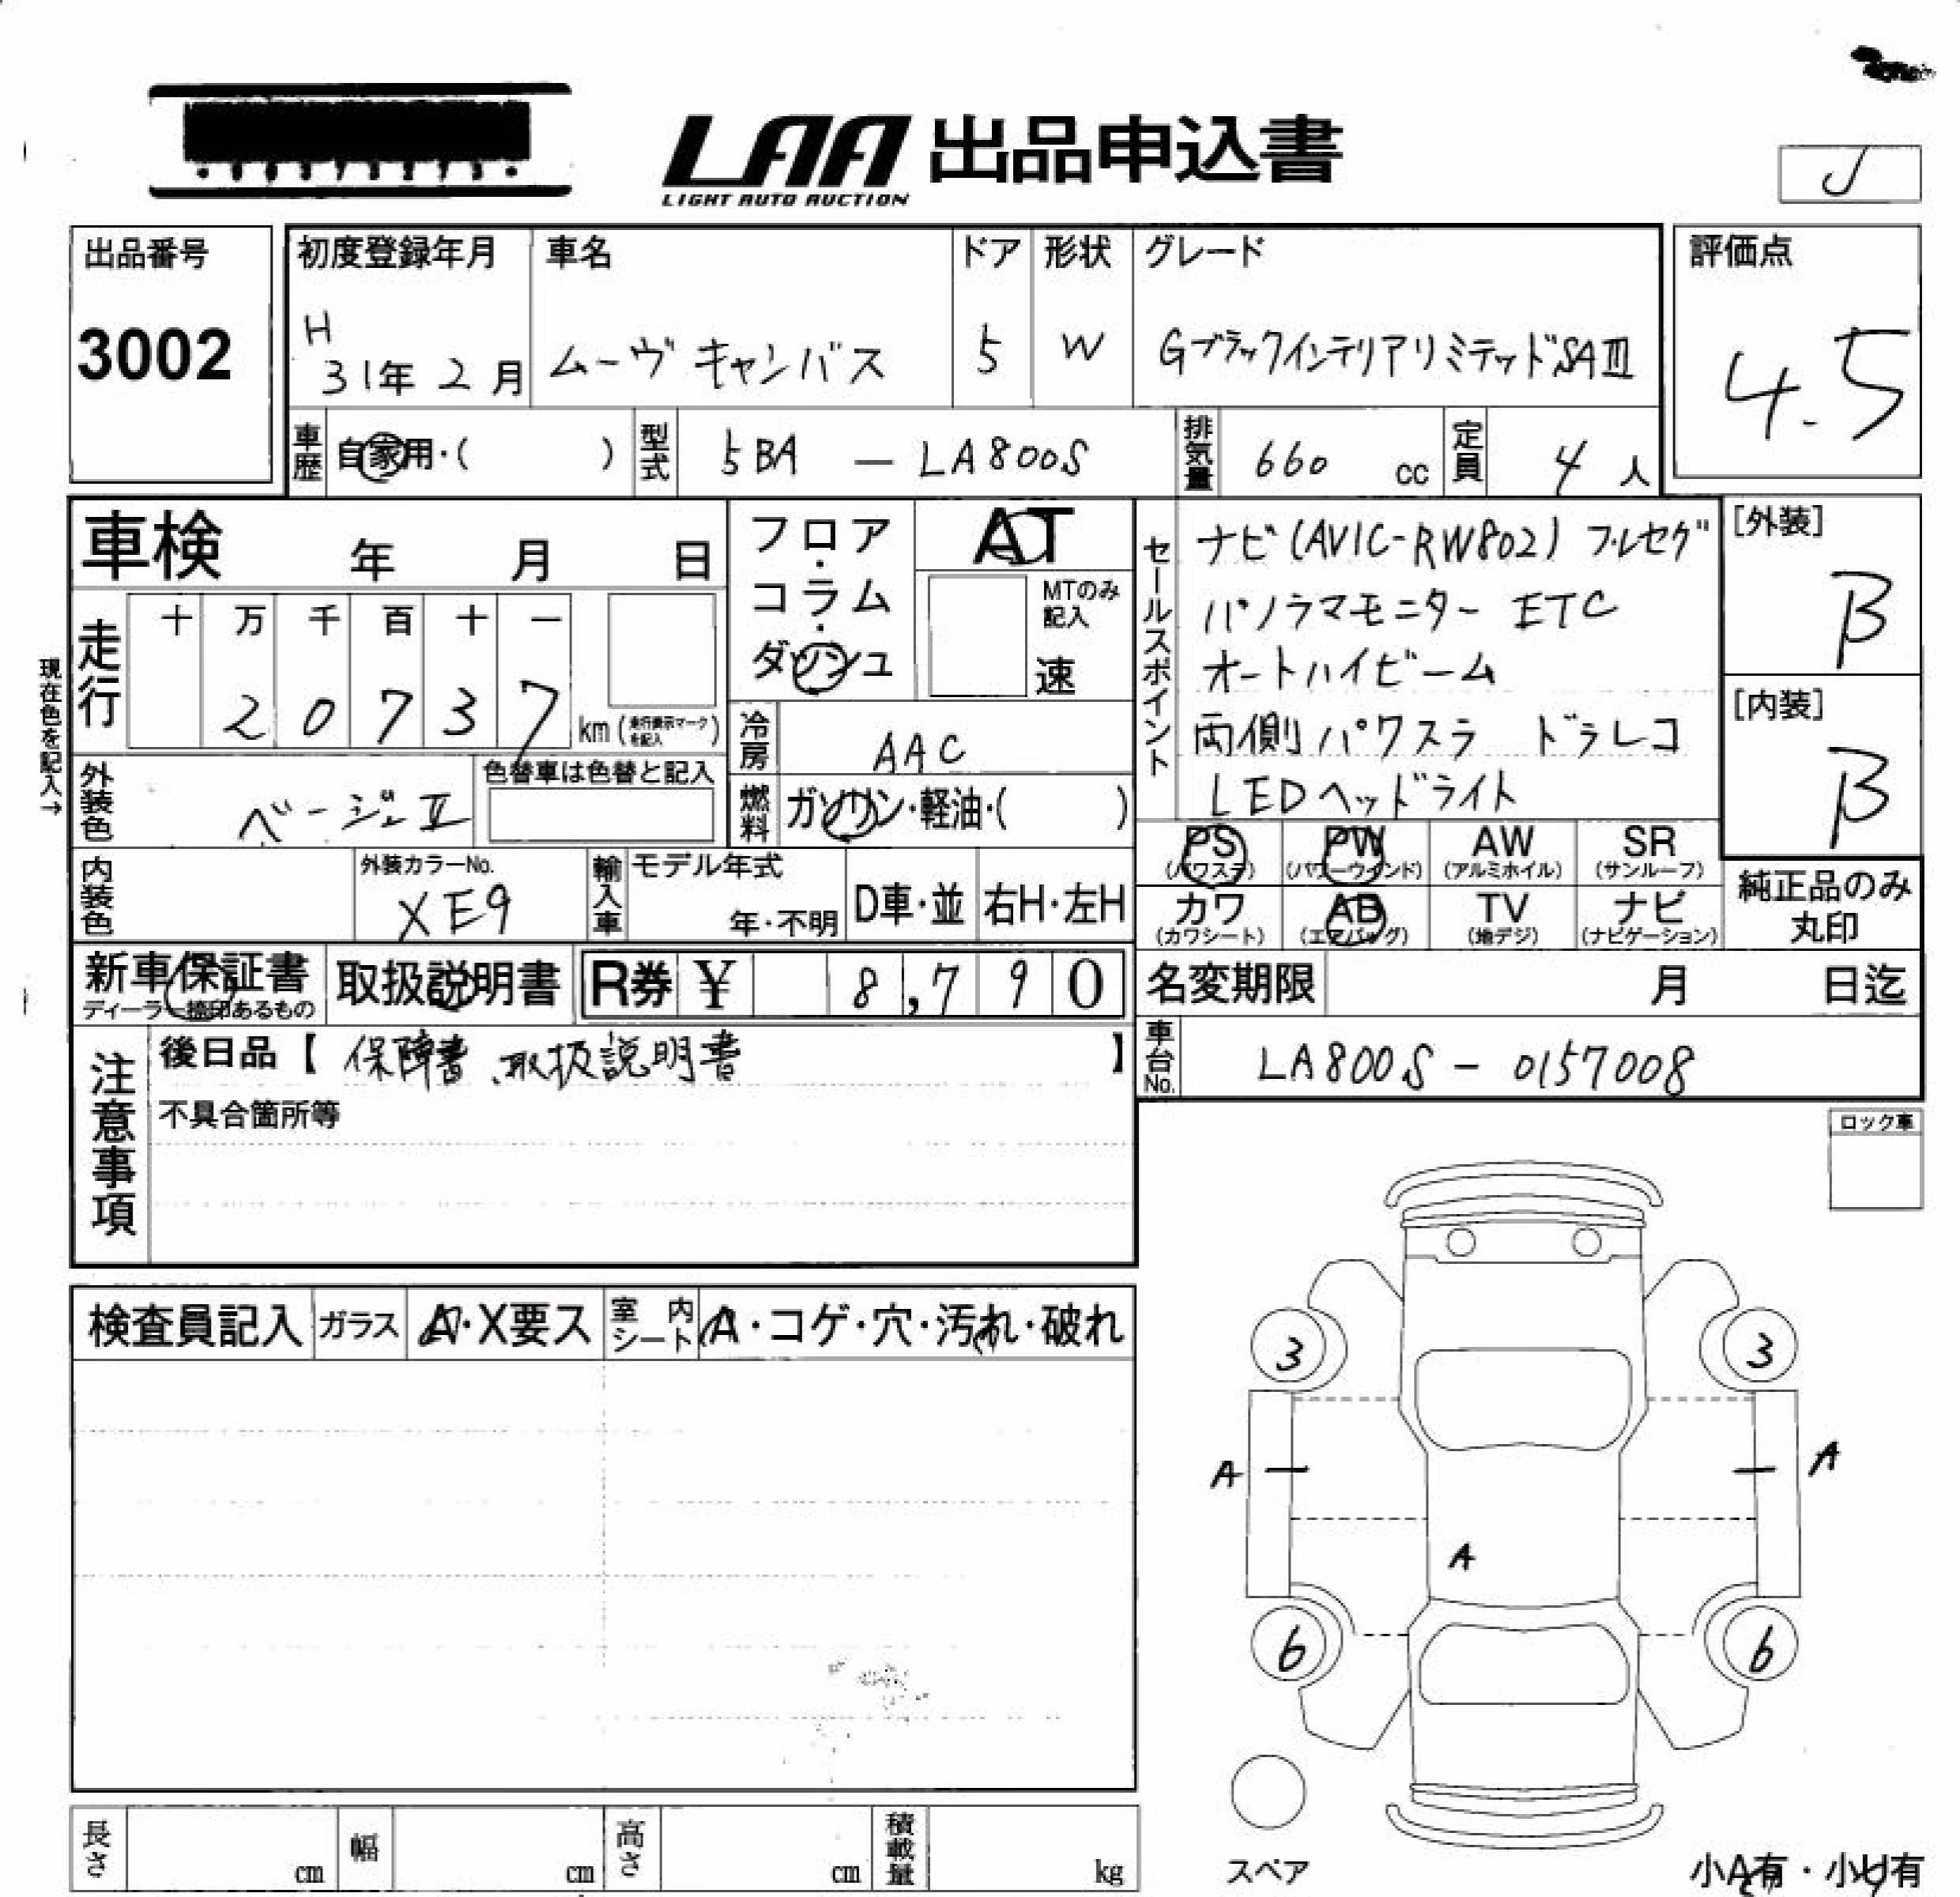 LAA 出品申込書
LIGHT AUTO AUCTION
J
出品番号
3002
初度登録年月
H
31年 2月
車名
ムーヴ キャンバス
ドア
5
形状
W
グレード
GブラックインテリアリミテッドSAⅢ
評価点
4.5
車歴
自家用・( )
型式
5BA — LA800S
排気量
660 cc
定員
4 人
車検 年 月 日
フロア・コラム・ダッシュ
AT
MTのみ記入
速
走行
十 万 千 百 十 一
2 0 7 3 7 km (走行表示マークを記入)
現在色を記入→
外装色
ベージュⅡ
色替車は色替と記入
冷房
AAC
燃料
ガソリン・軽油・( )
内装色
外装カラーNo.
XE9
輸入車
モデル年式
年・不明
D車・並
右H・左H
セールスポイント
ナビ(AVIC-RW802) フルセグ
パノラマモニター ETC
オートハイビーム
両側パワスラ ドラレコ
LEDヘッドライト
[外装]
B
[内装]
B
PS
(パワステ)
PW
(パワーウインド)
AW
(アルミホイル)
SR
(サンルーフ)
カワ
(カワシート)
AB
(エアバッグ)
TV
(地デジ)
ナビ
(ナビゲーション)
純正品のみ
丸印
新車保証書
ディーラー捺印あるもの
取扱説明書
R券 ¥ 8,790
名変期限 月 日迄
車台No.
LA800S - 0157008
注意事項
後日品【 保障書、取扱説明書 】
不具合箇所等
ロック車
検査員記入
ガラス
A・X要ス
室内シート
A・コゲ・穴・汚れ・破れ
3
3
A
A
A
6
6
スペア
長さ cm
幅 cm
高さ cm
積載量 kg
小A有・小U有